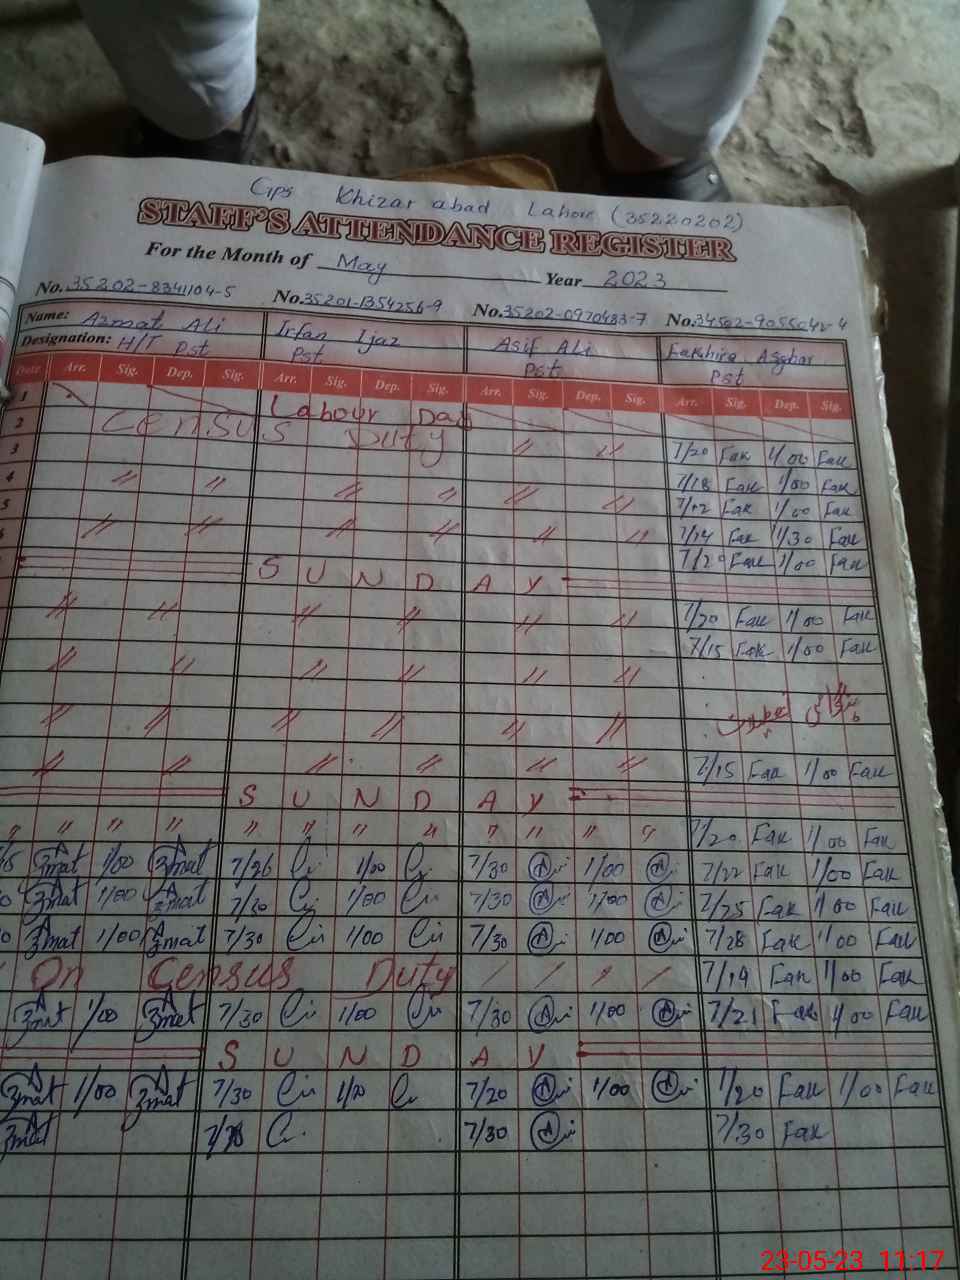 Gps Khizar abad Lahore (35220202)
STAFF'S ATTENDANCE REGISTER
For the Month of May Year 2023
No. 35202-8341104-5 No. 35201-1354256-9 No. 35202-0970483-7 No.
Name: Azmat Ali Irfan Ijaz Asif Ali Asghar
Designation: H/T Pst Pst Pst Pst
Date Arr. Sig. Dep. Sig. Arr. Sig. Dep. Sig. Arr. Sig. Dep. Sig. Arr. Sig. Dep. Sig.
1 Labour Day
2 Census Duty 7/20 Fak 1/00 Fak
3 " " 7/18 Fak 1/00 Fak
4 " " " " " " 7/12 Fak 1/00 Fak
5 " " " " " " 7/14 Fak 1/30 Fak
6 7/20 Fak 1/00 Fak
SUNDAY
" " " " " " 7/20 Fak 1/00 Fak
" " " " " " 7/15 Fak 1/00 Fak
" " " " " "
" " " " " " 7/15 Fak 1/00 Fak
SUNDAY
" " " " " " " " " " " " 7/20 Fak 1/00 Fak
Azmat 1/00 Azmat 7/26 1/00 7/30 1/00 7/22 Fak 1/00 Fak
Azmat 1/00 Azmat 7/20 1/00 7/30 1/00 7/25 Fak 1/00 Fak
Azmat 1/00 Azmat 7/30 1/00 7/30 1/00 7/28 Fak 1/00 Fak
On Census Duty 7/19 Fak 1/00 Fak
Azmat 1/00 Azmat 7/30 1/00 7/30 1/00 7/21 Fak 1/00 Fak
SUNDAY
Azmat 1/00 Azmat 7/30 7/20 1/00 7/20 Fak 1/00 Fak
Azmat 7/30 7/30 Fak
23-05-23 11:17